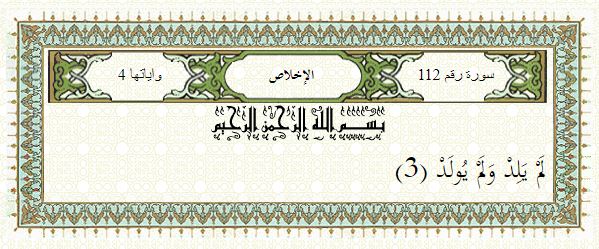 سورة رقم 112 الإخلاص وأياتها 4
بسم الله الرحمن الرحيم
لَمْ يَلِدْ وَلَمْ يُولَدْ (3)